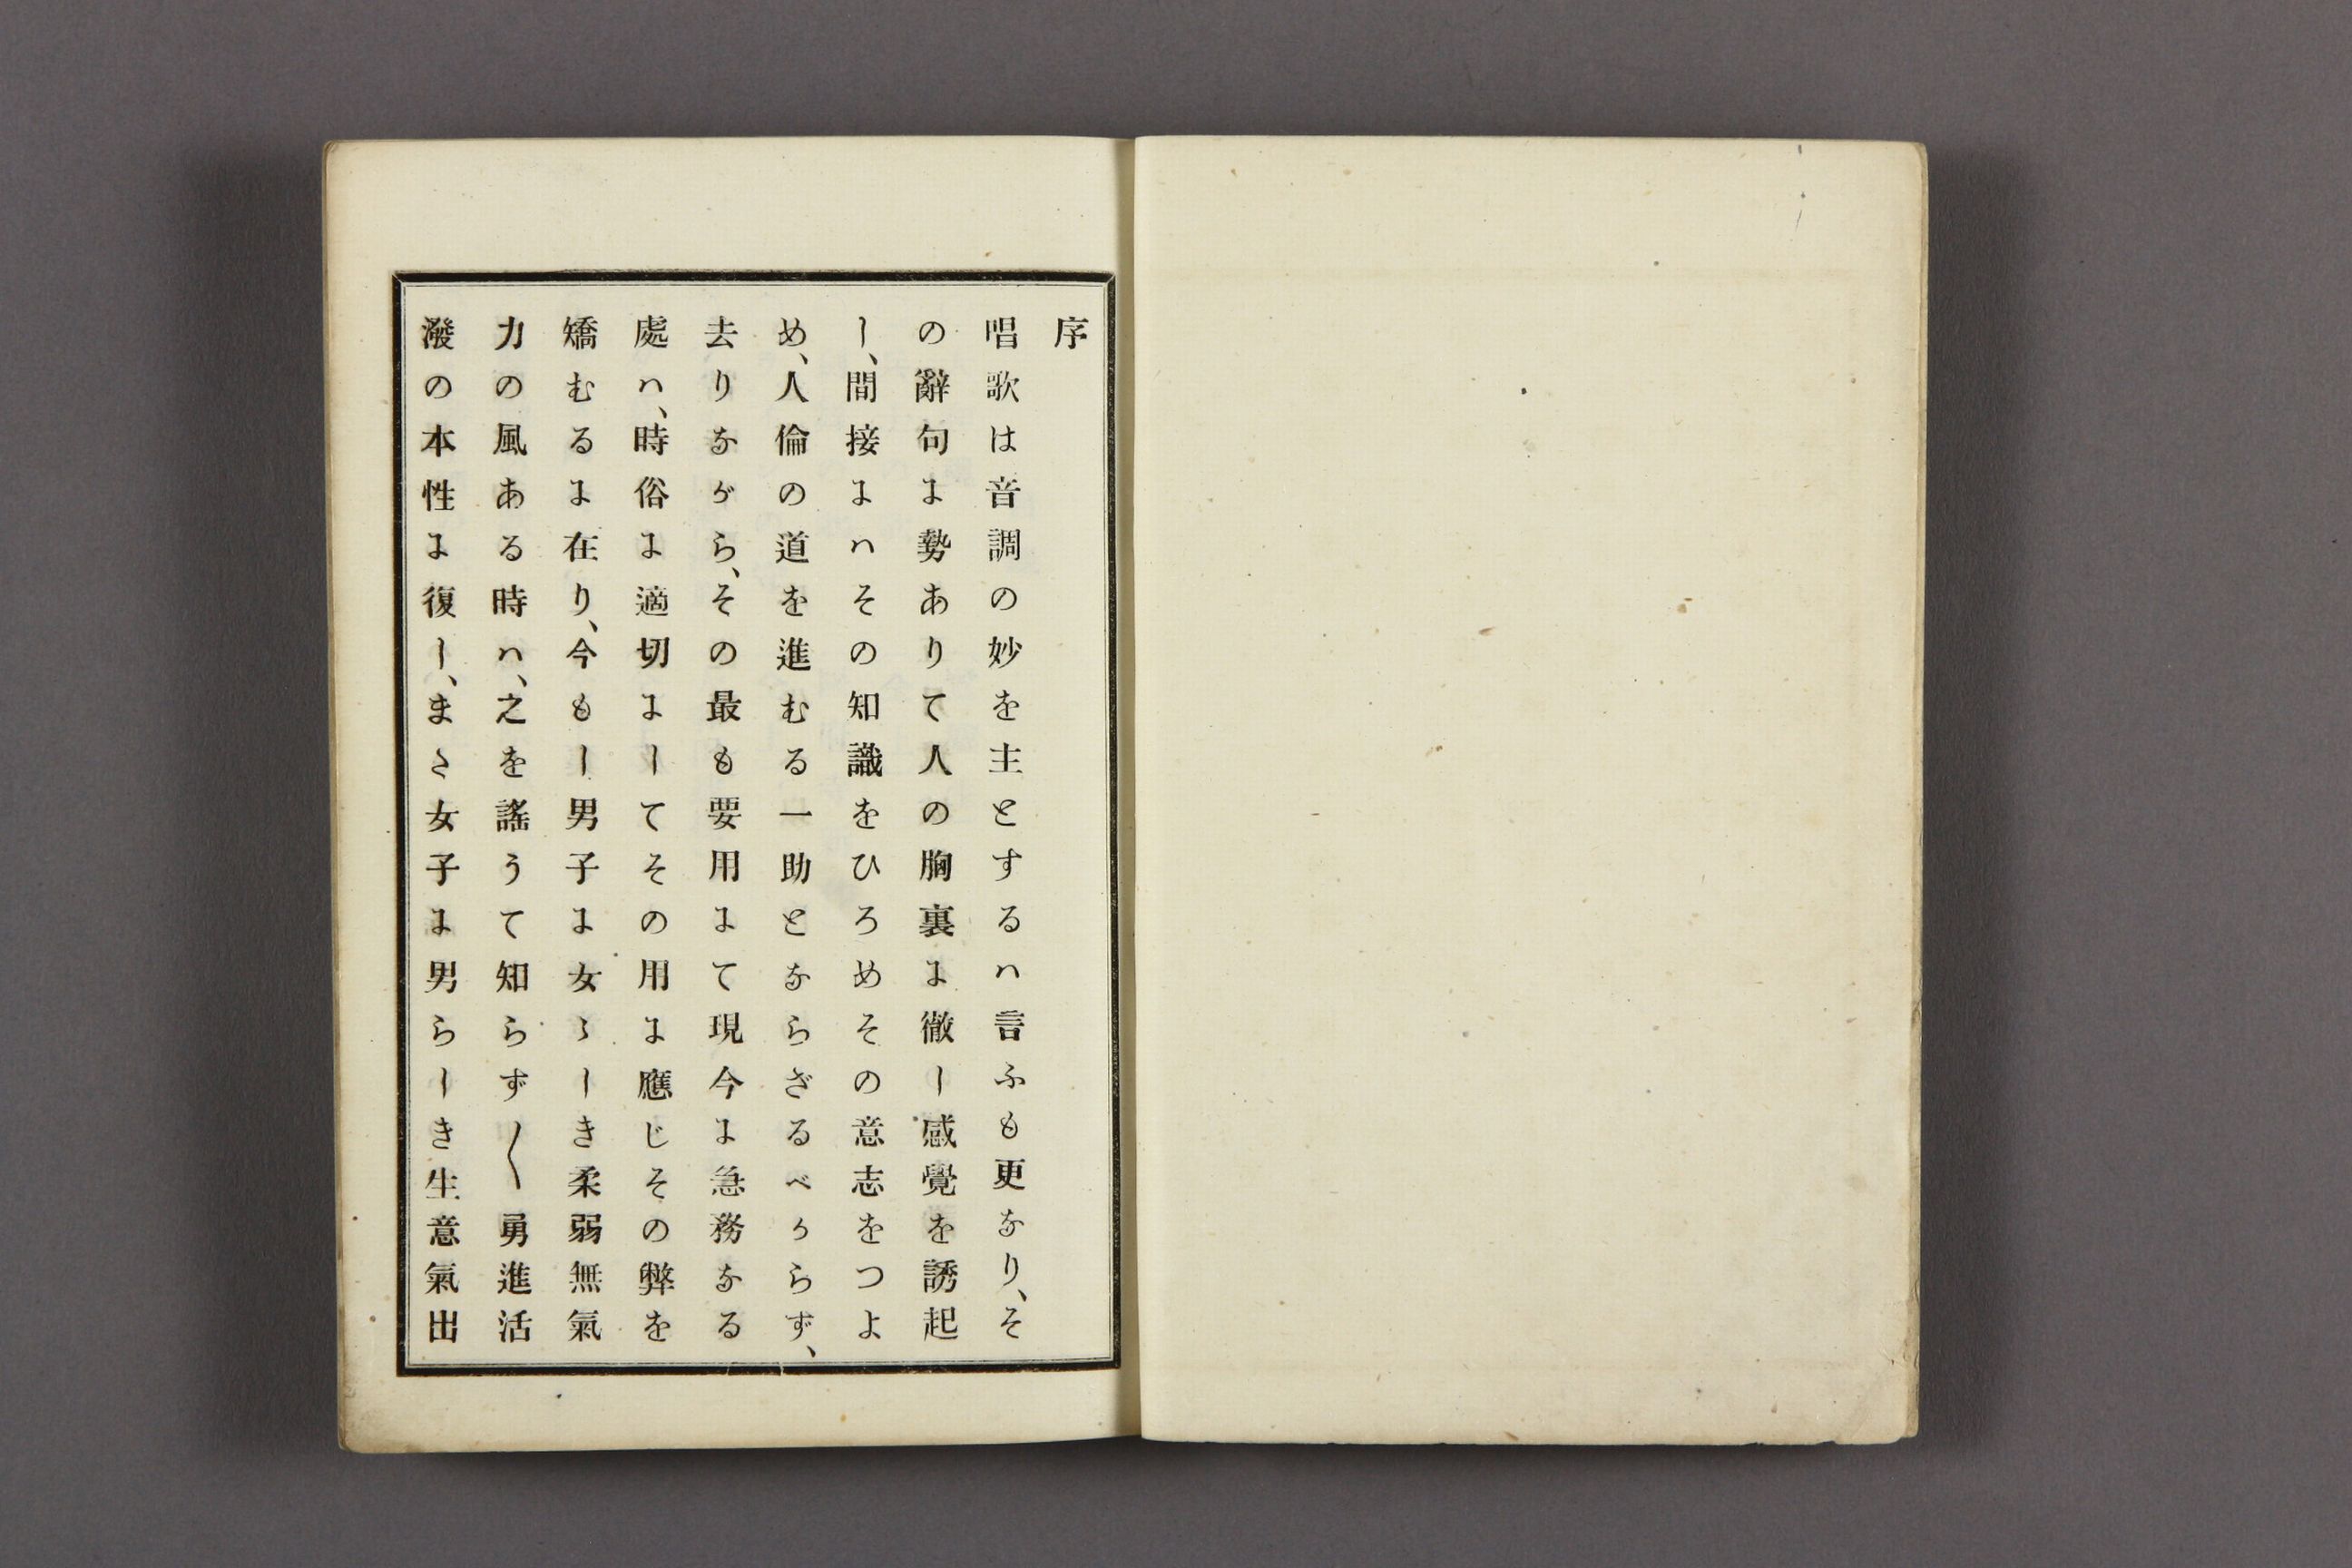 序
唱歌は音調の妙を主とするハ言ふも更なり、そ
の辭句に勢ありて人の胸裏に徹し感覺を誘起
し、間接にハその知識をひろめその意志をつよ
め、人倫の道を進むる一助とならざるべからず、
去りながら、その最も要用にて現今に急務なる
處ハ、時俗に適切にしてその用に應じその弊を
矯むるに在り、今もし男子に女〻しき柔弱無氣
力の風ある時ハ、之を謠うて知らず〱勇進活
潑の本性に復し、まさ女子に男らしき生意氣出